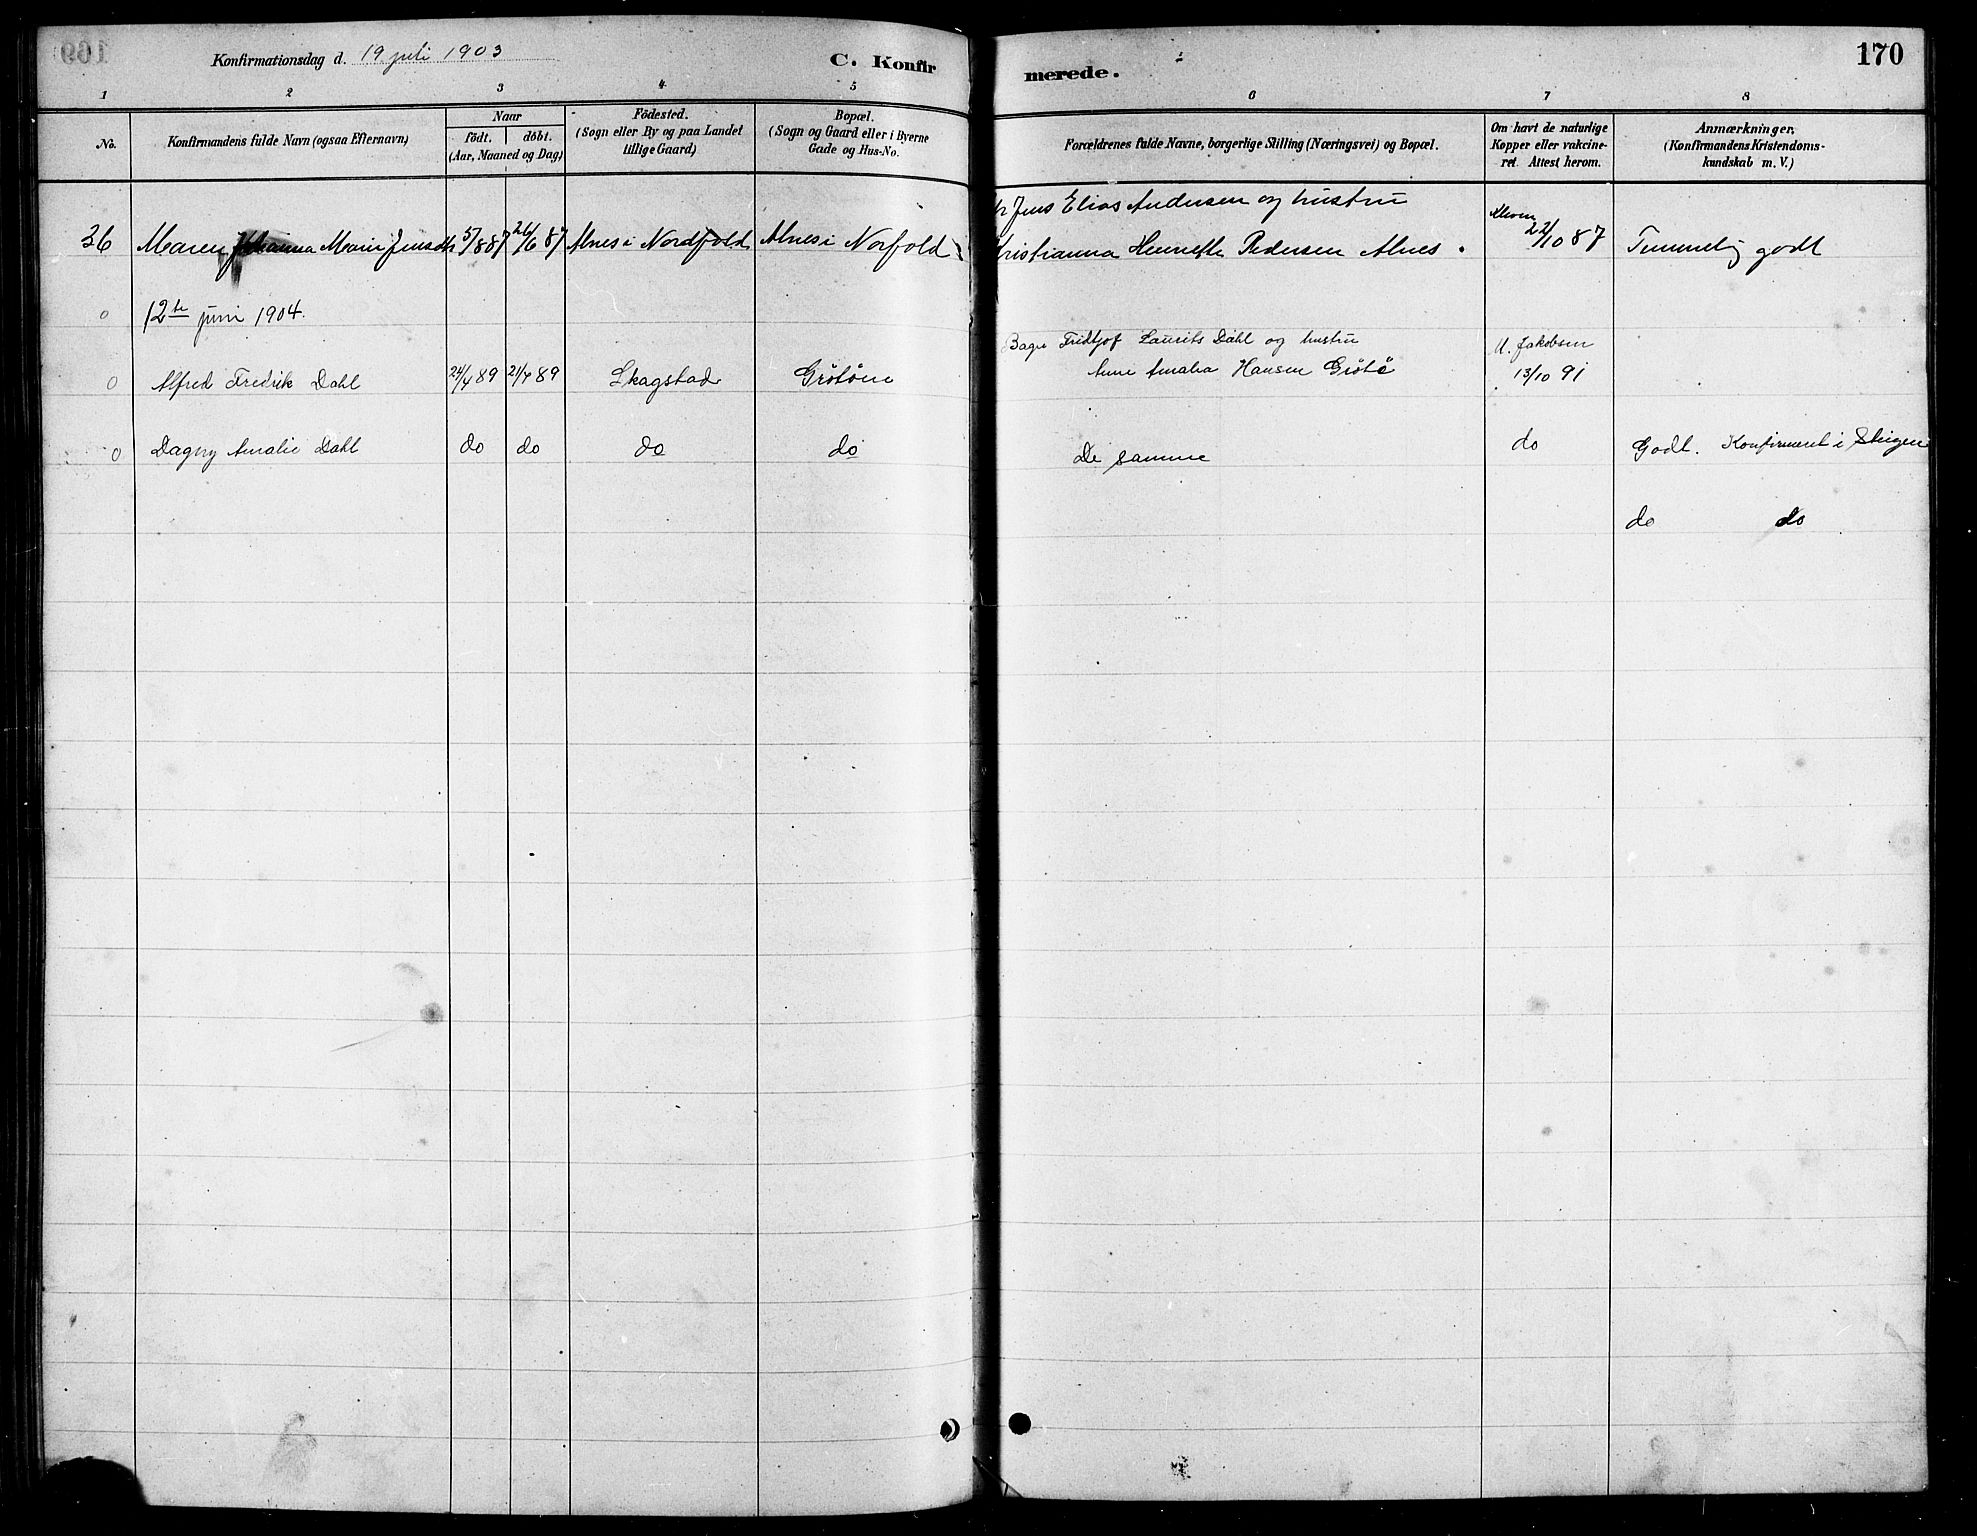 169
Konfirmationsdag d. 19 juli 1903
C. Konfir
merede.
170
1 2 3 4 5 6 7 8
No.
Konfirmandens fulde Navn (ogsaa Efternavn)
Naar
födt. döbt.
(Aar, Maaned og Dag)
Födested.
(Sogn eller By og paa Landet
tillige Gaard)
Bopæl.
(Sogn og Gaard eller i Byerne
Gade og Hus-No.
Forældrenes fulde Navne, borgerlige Stilling (Næringsvei) og Bopæl.
Om havt de naturlige
Kopper eller vakcine-
ret. Attest herom.
Anmærkninger,
(Konfirmandens Kristendoms-
kundskab m. V.)
Jens Elias Andersen og hustru
36 Maren Johanna Marie Jensdtr 5/8 87 26/6 87 Alnes i Nordfold Alnes i Norfold
Kristianna Henrette Pedersen Alnes. 22/10 87 Temmelig godt
0 12te juni 1904.
Fridtjof Laurits Dahl og hustru M. Jakobsen
0 Alfred Fredrik Dahl 24/4 89 21/7 89 Skagstad Grötöen
Anne Amalia Hansen Grötö 13/10 91
0 Dagny Amalie Dahl do do do do
De samme do Godt. Konfirmeret i Steigen
do do